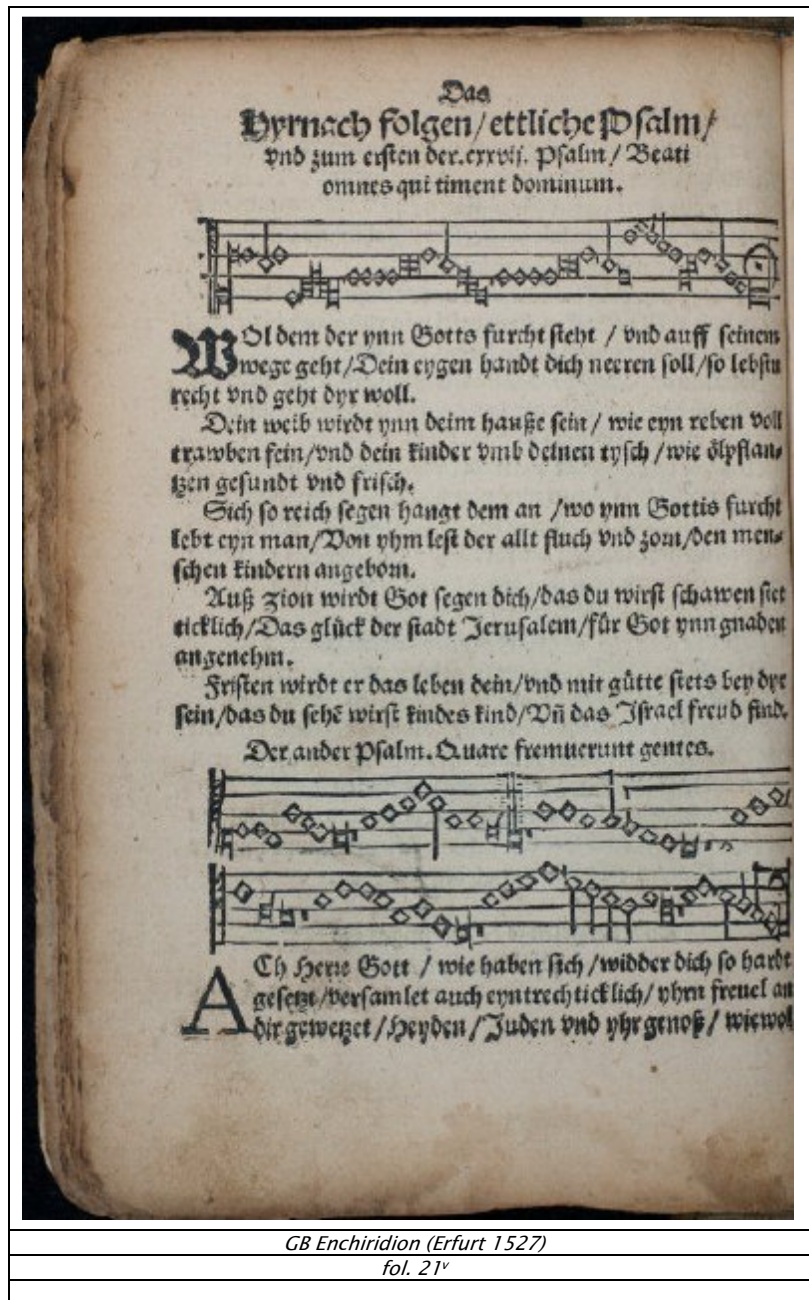 Das
Hyrnach folgen/ettliche Psalm/
vnd zum ersten der.cxxvij. Psalm/Beati
omnes qui timent dominum.
WOl dem der ynn Gotts furcht steht / vnd auff seinem
wege geht/Dein eygen handt dich neeren soll/so lebstu
recht vnd geht dyr woll.
Dein weib wirdt ynn deim hauße sein / wie eyn reben voll
trawben fein/vnd dein kinder vmb deinen tysch/wie ölpflan-
tzen gesundt vnd frisch.
Sich so reich segen hangt dem an /wo ynn Gottis furcht
lebt eyn man/Von yhm lest der allt fluch vnd zorn/den men-
schen kindern angeborn.
Auß zion wirdt Got segen dich/das du wirst schawen stet
ticklich/Das glück der stadt Jerusalem/für Got ynn gnaden
angenehm.
Fristen wirdt er das leben dein/vnd mit gütte stets bey dyr
sein/das du sehē wirst kindes kind/Vñ das Israel freud find.
Der ander Psalm. Quare fremuerunt gentes.
ACh Herre Gott / wie haben sich /widder dich so hardt
gesetzt/versamlet auch eyntrechticklich/yhrn freuel an
dir gewetzet/Heyden/Juden vnd yhr genoß/wiewol
GB Enchiridion (Erfurt 1527)
fol. 21v